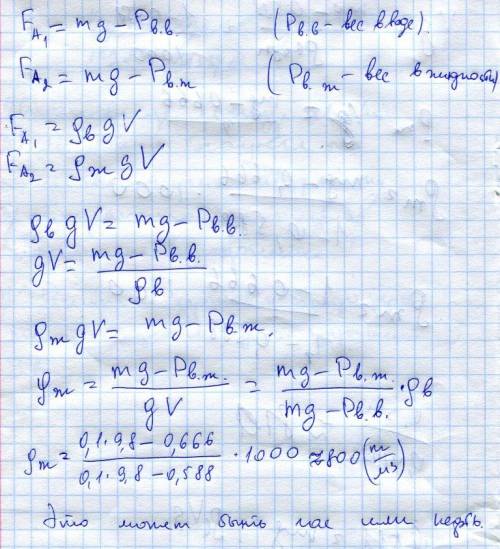 F_A₁ = mg − Pв.в. (Pв.в − вес в воде).
F_A₂ = mg − Pв.ж (Pв.ж − вес в жидкости)
F_A₁ = ρв gV
F_A₂ = ρж gV
ρв gV = mg − Pв.в.
gV = (mg − Pв.в.) / ρв
ρж gV = mg − Pв.ж.
ρж = (mg − Pв.ж.) / gV = (mg − Pв.ж.) / (mg − Pв.в.) · ρв
ρж = (0,1·9,8 − 0,666) / (0,1·9,8 − 0,588) · 1000 ≈ 800 (кг/м3)
Это может быть или нефть.